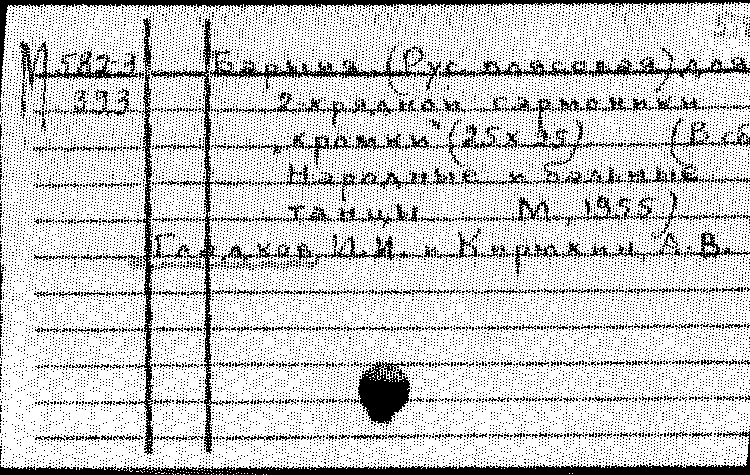 М 582-3 Барыня (Рус. плясовая) для
393 2-хрядной гармоники
"хромки" (25х25) (В сб.
Народные и бальные
танцы М., 1955)
Гладков, И.И. и Кирюхин, А.В.